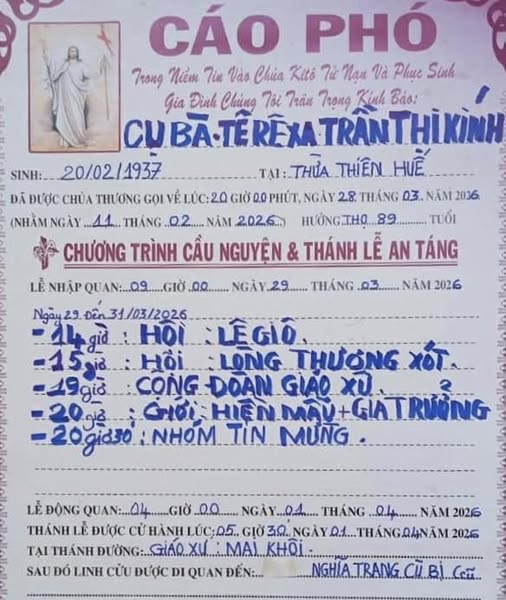 CÁO PHÓ
Trong Niềm Tin Vào Chúa Kitô Tử Nạn Và Phục Sinh
Gia Đình Chúng Tôi Trân Trọng Kính Báo:
CỤ BÀ-TÊRÊXA TRẦN THỊ KÍNH
SINH: 20/02/1937 TẠI: THỪA THIÊN HUẾ
ĐÃ ĐƯỢC CHÚA THƯƠNG GỌI VỀ LÚC: 20 GIỜ 00 PHÚT, NGÀY 28 THÁNG 03 NĂM 2026
(NHẰM NGÀY 11 THÁNG 02 NĂM 2026) HƯỞNG THỌ 89 TUỔI
CHƯƠNG TRÌNH CẦU NGUYỆN & THÁNH LỄ AN TÁNG
LỄ NHẬP QUAN: 09 GIỜ 00 NGÀY 29 THÁNG 03 NĂM 2026
Ngày 29 Đến 31/03/2026
-14giờ : HỘI : LÊGIÔ.
-15giờ : HỘI : LÒNG THƯƠNG XÓT.
-19giờ : CỘNG ĐOÀN GIÁO XỨ.
-20giờ : GIỚI : HIỀN MẪU + GIA TRƯỞNG
-20giờ30 : NHÓM TIN MỪNG.
LỄ ĐỘNG QUAN: 04 GIỜ 00 NGÀY 01 THÁNG 04 NĂM 2026
THÁNH LỄ ĐƯỢC CỬ HÀNH LÚC: 05 GIỜ 30 NGÀY 01 THÁNG 04 NĂM 2026
TẠI THÁNH ĐƯỜNG: GIÁO XỨ : MAI KHÔI.
SAU ĐÓ LINH CỮU ĐƯỢC DI QUAN ĐẾN: NGHĨA TRANG CŨ BÌ